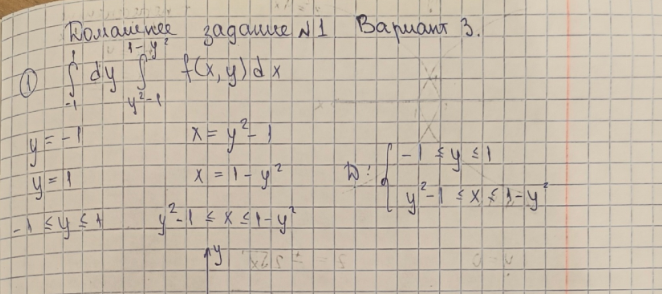 Домашнее задание №1 Вариант 3.
① ∫₋₁¹ dy ∫_{y²-1}^{1-y²} f(x,y)dx
y = -1 x = y² - 1
y = 1 x = 1 - y²
D: { -1 ≤ y ≤ 1
y² - 1 ≤ x ≤ 1 - y²
-1 ≤ y ≤ 1 y² - 1 ≤ x ≤ 1 - y²
y